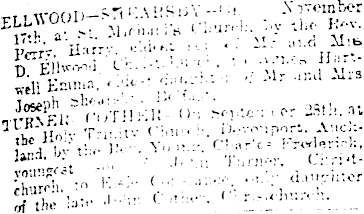 ELLWOOD—SHEARSBY—On November
17th, at St. Michael's Church, by the Rev.
Perry, Harry, eldest son of Mr and Mrs
D. Ellwood, Christchurch, to Hart-
well Emma, eldest daughter of Mr and Mrs
Joseph Shearsby, Belfast.
TURNER—COTHER—On September 28th, at
the Holy Trinity Church, Devonport, Auck-
land, by the Rev. Young, Charles Frederick,
youngest John Turner, Christ-
church, to Elsie Constance, only daughter
of the late John Cother, Christchurch.